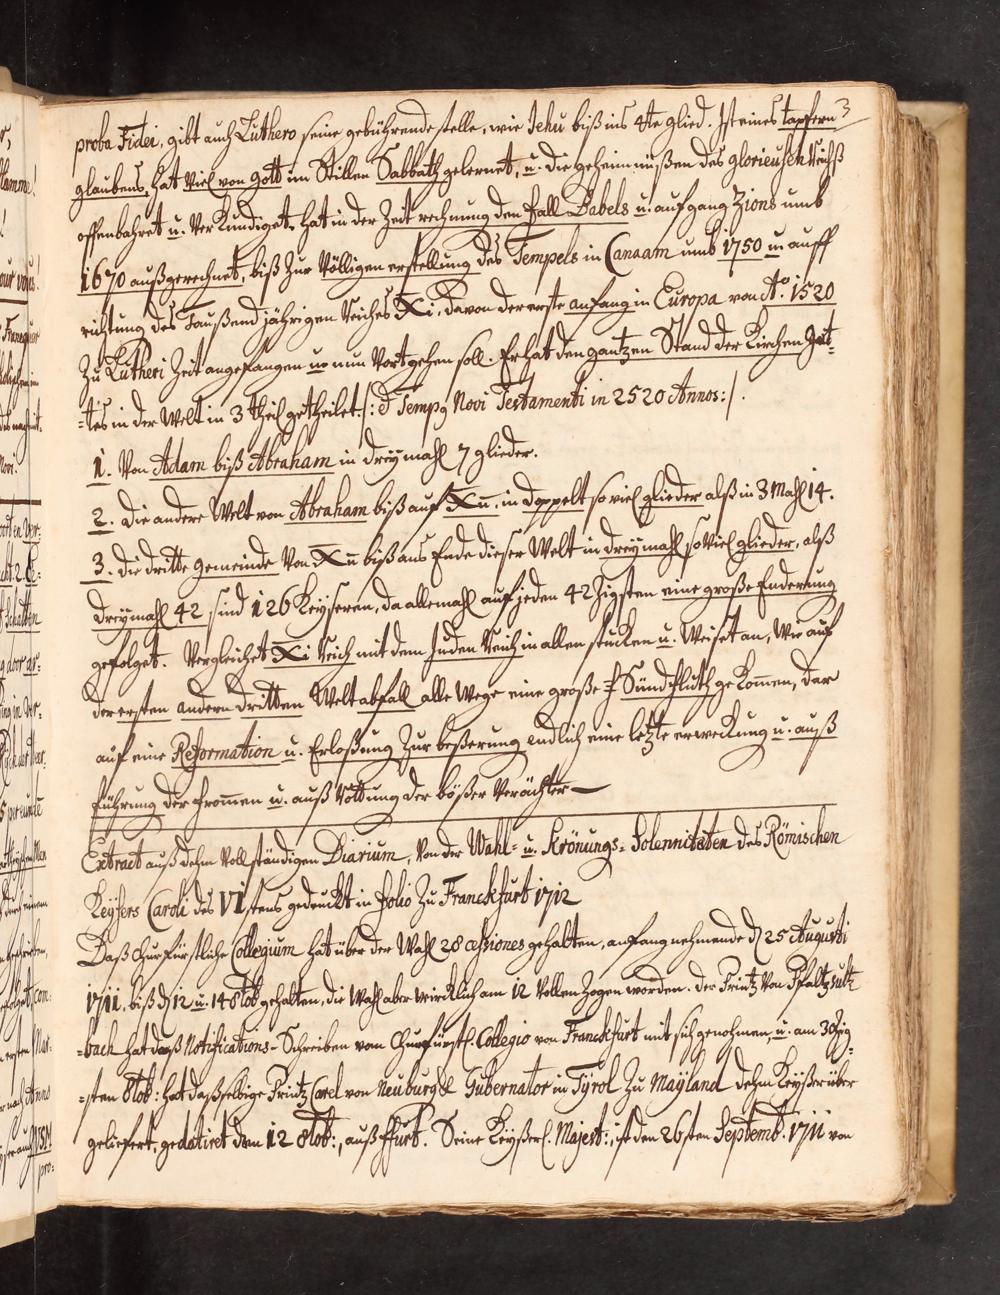 3
proba Fidei, gibt auch Luthero seine gebührende stelle, wie Jehu biß ins 4te glied. Ist eines tapfern
glaubens, hat viel von gott im Stillen Sabbath gelernet, u. die geheimnüßen des glorieusen Reichß
offenbahret u. Verkündiget, hat in der Zeit rechnung den fall Babels u. aufgang Zions umb
1670 außgerechnet, biß Zur Völligen erstellung des Tempels in Canaam umb 1750 u. auff
richtung des Taußend jährigen Reiches Xi, davon der erste anfang in Europa von Aº. 1520
Zu Lutheri Zeit angefangen u. nun Vort gehen soll. Er hat den gantzen Stand der Kirchen Got-
-tes in der Welt in 3 theil getheilet /: Temp Novi Testamenti in 2520 Annos :/.
1. Von Adam biß Abraham in dreÿmahl 7 glieder.
2. die andere Welt von Abraham biß auf Xu, in doppelt so viel glieder alß in 3 Mahl 14.
3. die dritte gemeinde Von Xu biß ans Ende dieser Welt in dreÿmahl so viel glieder, alß
dreÿmahl 42 sind 126 Keÿseren, da allemahl auf jeden 42zigsten eine große Enderung
gefolget. Vergleichet Xi Reich mit dem Juden Reich in allen stücken u. Weiset an, Wie auf
der ersten andern dritten Welt abfall alle Wege eine große Sündfluth gekommen, dar
auf eine Reformation u. Erloßung Zur beßerung endlich eine letzte erweckung u. auß
führung der frommen u. auß Rottung der bößer Verächter
Extract auß dehm Vollständigen Diarium, Von der Wahl- u. Krönungs-Solennitäten des Römischen
Keÿsers Caroli des VIstens gedruckt in folio Zu Franckfurt 1712
Daß Churfürstliche Collegium hat über der Wahl 28 cessiones gehalten, anfang nehmende d 25 Augusti
1711. biß d 12 u. 14 8tob gehalten, die Wahl aber wircklich am 12 Vollen Zogen worden. der Printz Von Pfaltz Sultz
-bach hat daß Notifications-Schreiben vom Churfürstl. Collegio von Franckfurt mit sich genohmen, u. am 30zig-
-sten 8tob: hat daßselbige Printz Carel von Neuburg Gubernator in Tÿrol Zu Maÿland dehm Keÿser über
geliefert, gedatiret den 12 8tob:, auß ffurt. Seine Keÿserl. Majest:, ist den 26sten Septemb. 1711 von